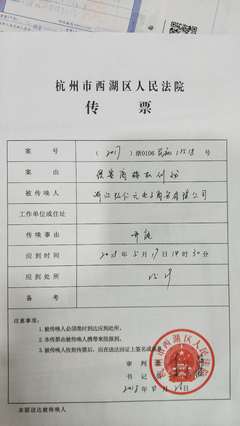 杭州市西湖区人民法院
传 票
案 号 （2017）浙0106 号
案 由 侵害商标权纠纷
被传唤人 电子商务有限公司
工作单位或住址
传唤事由 开庭
应到时间 2018年5月17日14时30分
应到处所
备 考
注意事项：
1.被传唤人必须准时到达应到处所。
2.本传票由被传唤人携带来院报到。
3.被传唤人收到传票后，应在送达回证上签名或盖章。
杭州市西湖区人民法院
审判
书记
2018年 月 日
本联送达被传唤人